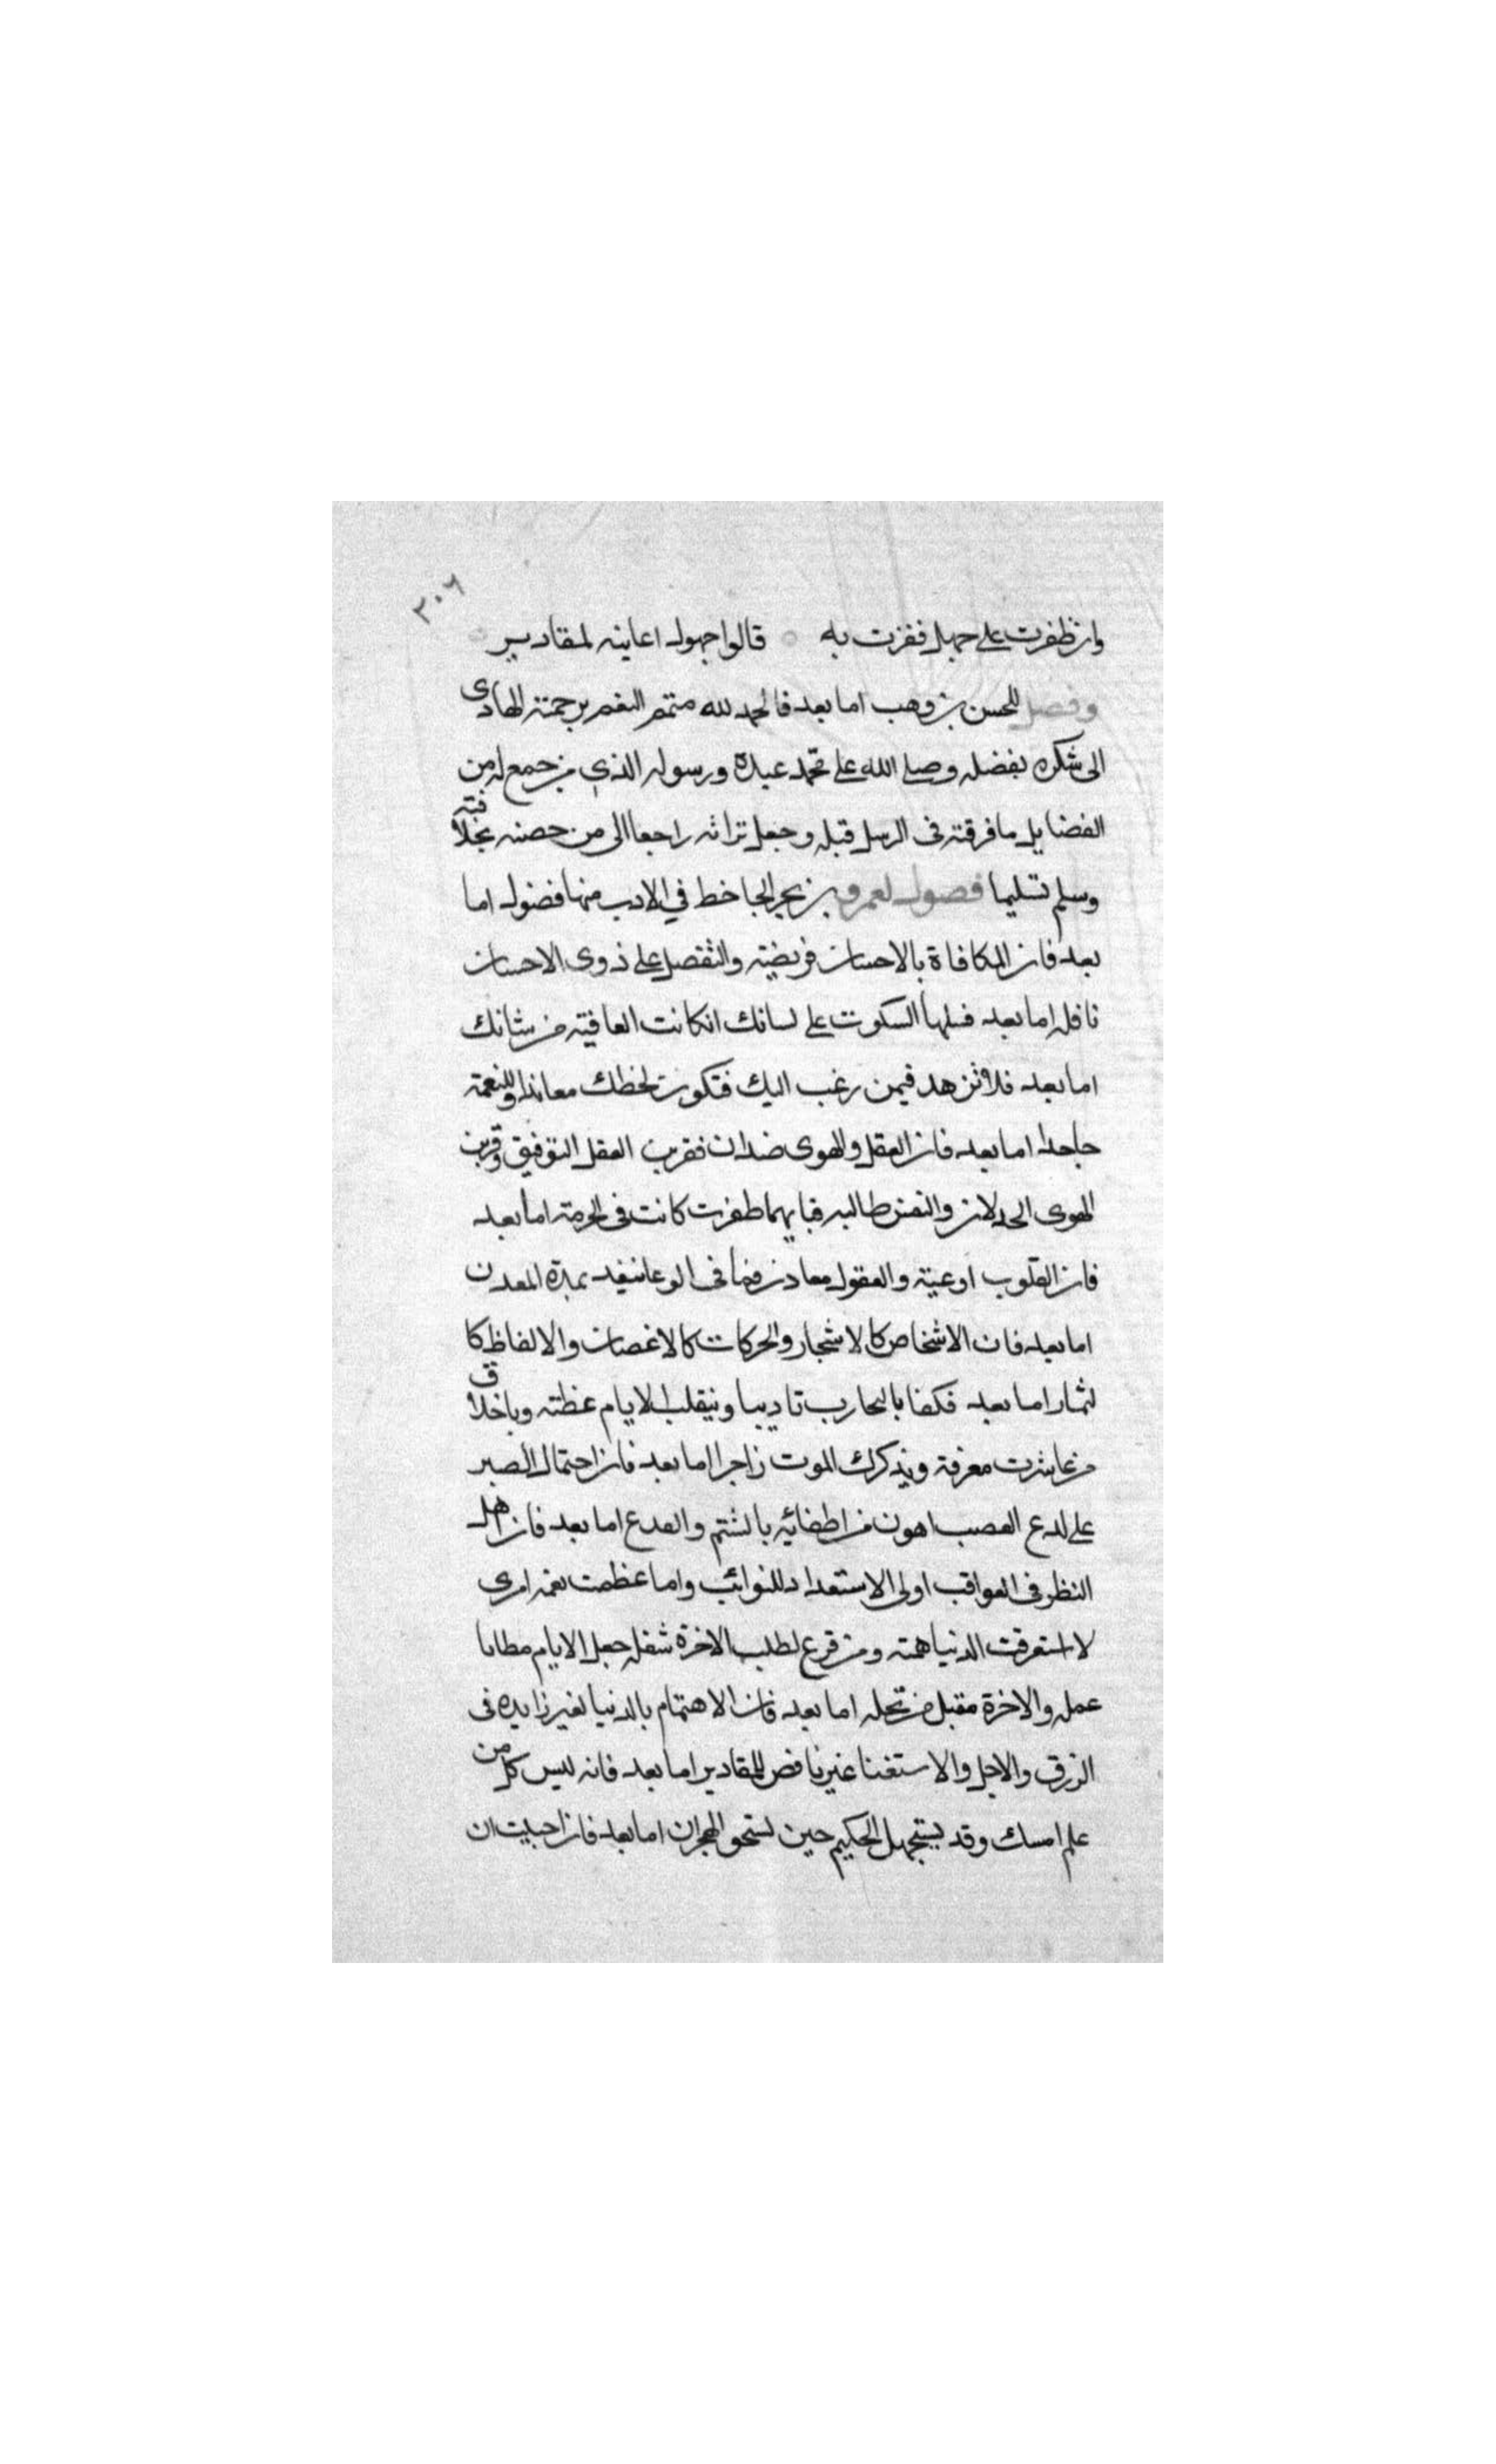 ٣٠٦
وان ظفرت على جهل ففزت به قالوا جهول اعانته المقادير
وفصل للحسن بن وهب اما بعد فالحمد لله متمم النعم برحمته الهادى
الى شكره بفضله وصلى الله على محمد عبده ورسوله الذى جمع له من
الفضايل ما فرقته فى الرسل قبله وجعل تراثه راجعا الى من خصته بخلافته
وسلم تسليما فصول لعمرو بن بحر الجاحظ في الادب منها فضول اما
بعد فان المكافاة بالاحسان فريضته والتفضل على ذوى الاحسان
نافله اما بعد فليها السكوت على لسانك ان كانت العافيته من شانك
اما بعد فلا تزهد فيمن رغب اليك فتكون لحظك معاندا وللنعمة
جاحدا اما بعد فان العقل والهوى ضدان فقرين العقل التوفيق وقرين
الهوى الخدلان والنفس طالبه فبايهما ظفرت كانت فى الحرمته اما بعد
فان القلوب اوعيته والعقول معادن فما فى الوعا ينفد بمدة المعدن
اما بعد فان الاشخاص كالاشجار والحركات كالاغصان والالفاظ كا
لثمار اما بعد فكفا بالتجارب تاديبا وبتقلب الايام عظته وباخلاق
من عاشرت معرفة وبذكرك الموت زاجرا اما بعد فان احتمال الصبر
على لدع الغصب اهون من اطفائيه بالشتم والقدع اما بعد فان اهل
النظر فى العواقب اولى الاستعداد للنوائب واما عظمت نعمه امرى
لا استغرقت الدنيا همته ومن فرغ لطلب الاخرة شغله جعل الايام مطايا
عمله والاخرة مقبل مرتحله اما بعد فان الاهتمام بالدنيا لغير زايده فى
الرزق والاجل والاستغنا غير ناقص للمقادير اما بعد فانه ليس كل من
علم امسك وقد يستجهل الحكيم حين يستحق الهجران اما بعد فان احببت ان